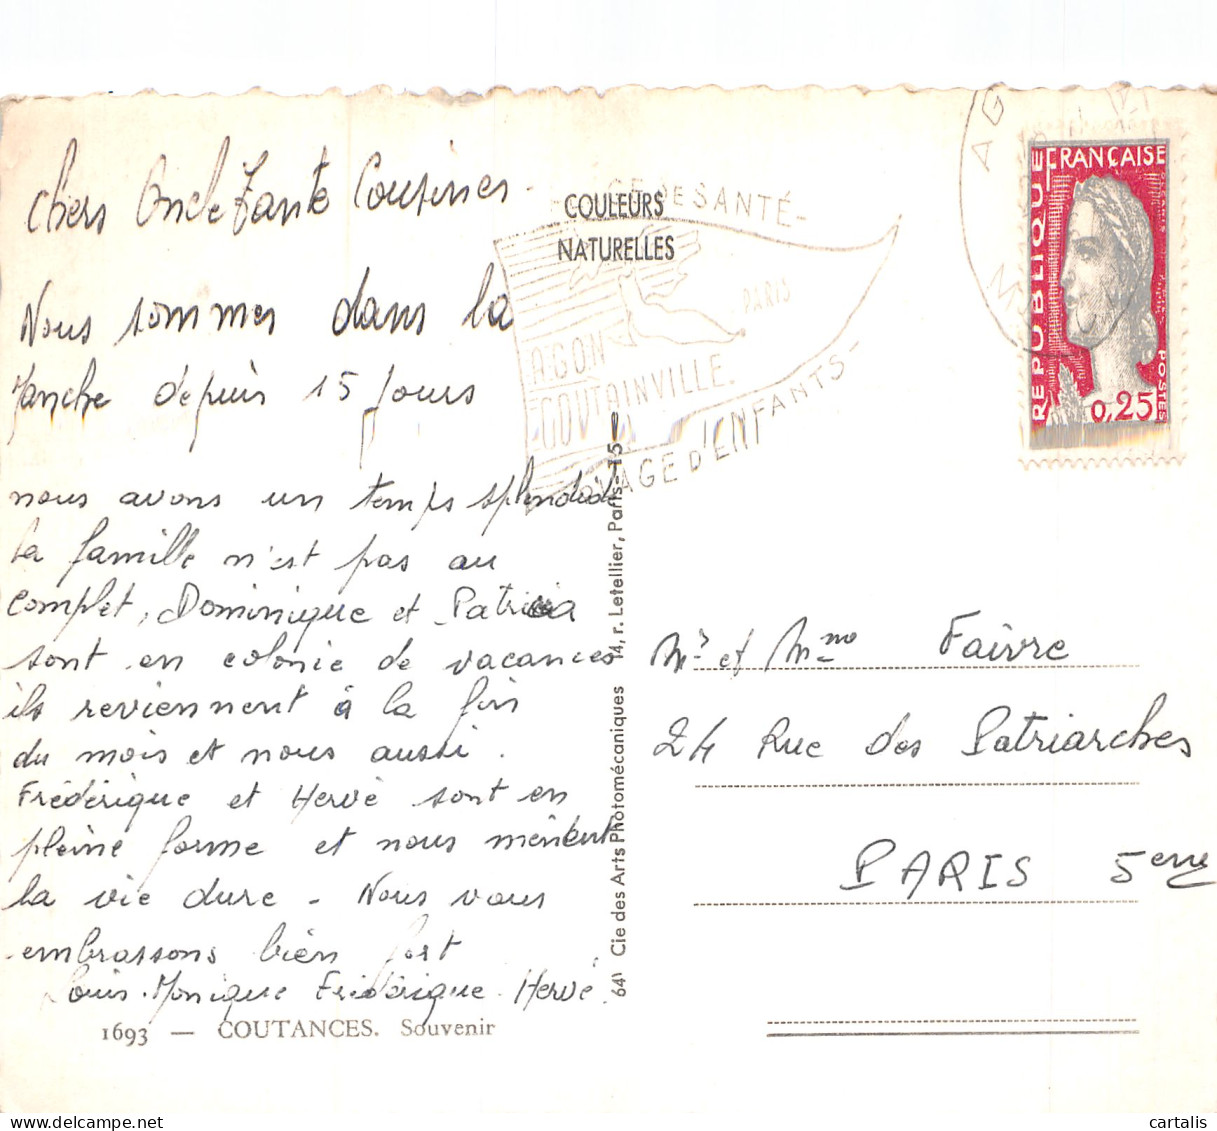 Chers Oncle Tante Cousines
Nous sommes dans la
Manche depuis 15 Jours
nous avons un temps splendide
la famille n'est pas au
complet, Dominique et Patricia
sont en colonie de vacances
ils reviennent à la fin
du mois et nous aussi.
Frédérique et Hervé sont en
pleine forme et nous mènent
la vie dure - Nous vous
embrassons bien fort
Louis. Monique Frédérique. Hervé.
1693 — COUTANCES. Souvenir
COULEURS
NATURELLES
DE SANTÉ -
PARIS
AGON
COUTAINVILLE.
D'ENFANTS -
641 Cie des Arts Photomécaniques 14, r. Letellier, Paris-15e
AG
RÉPUBLIQUE FRANÇAISE
0,25
POSTES
Mr et Mme Faivre
24 Rue des Patriarches
PARIS 5eme
www.cartalis.fr
cartalis